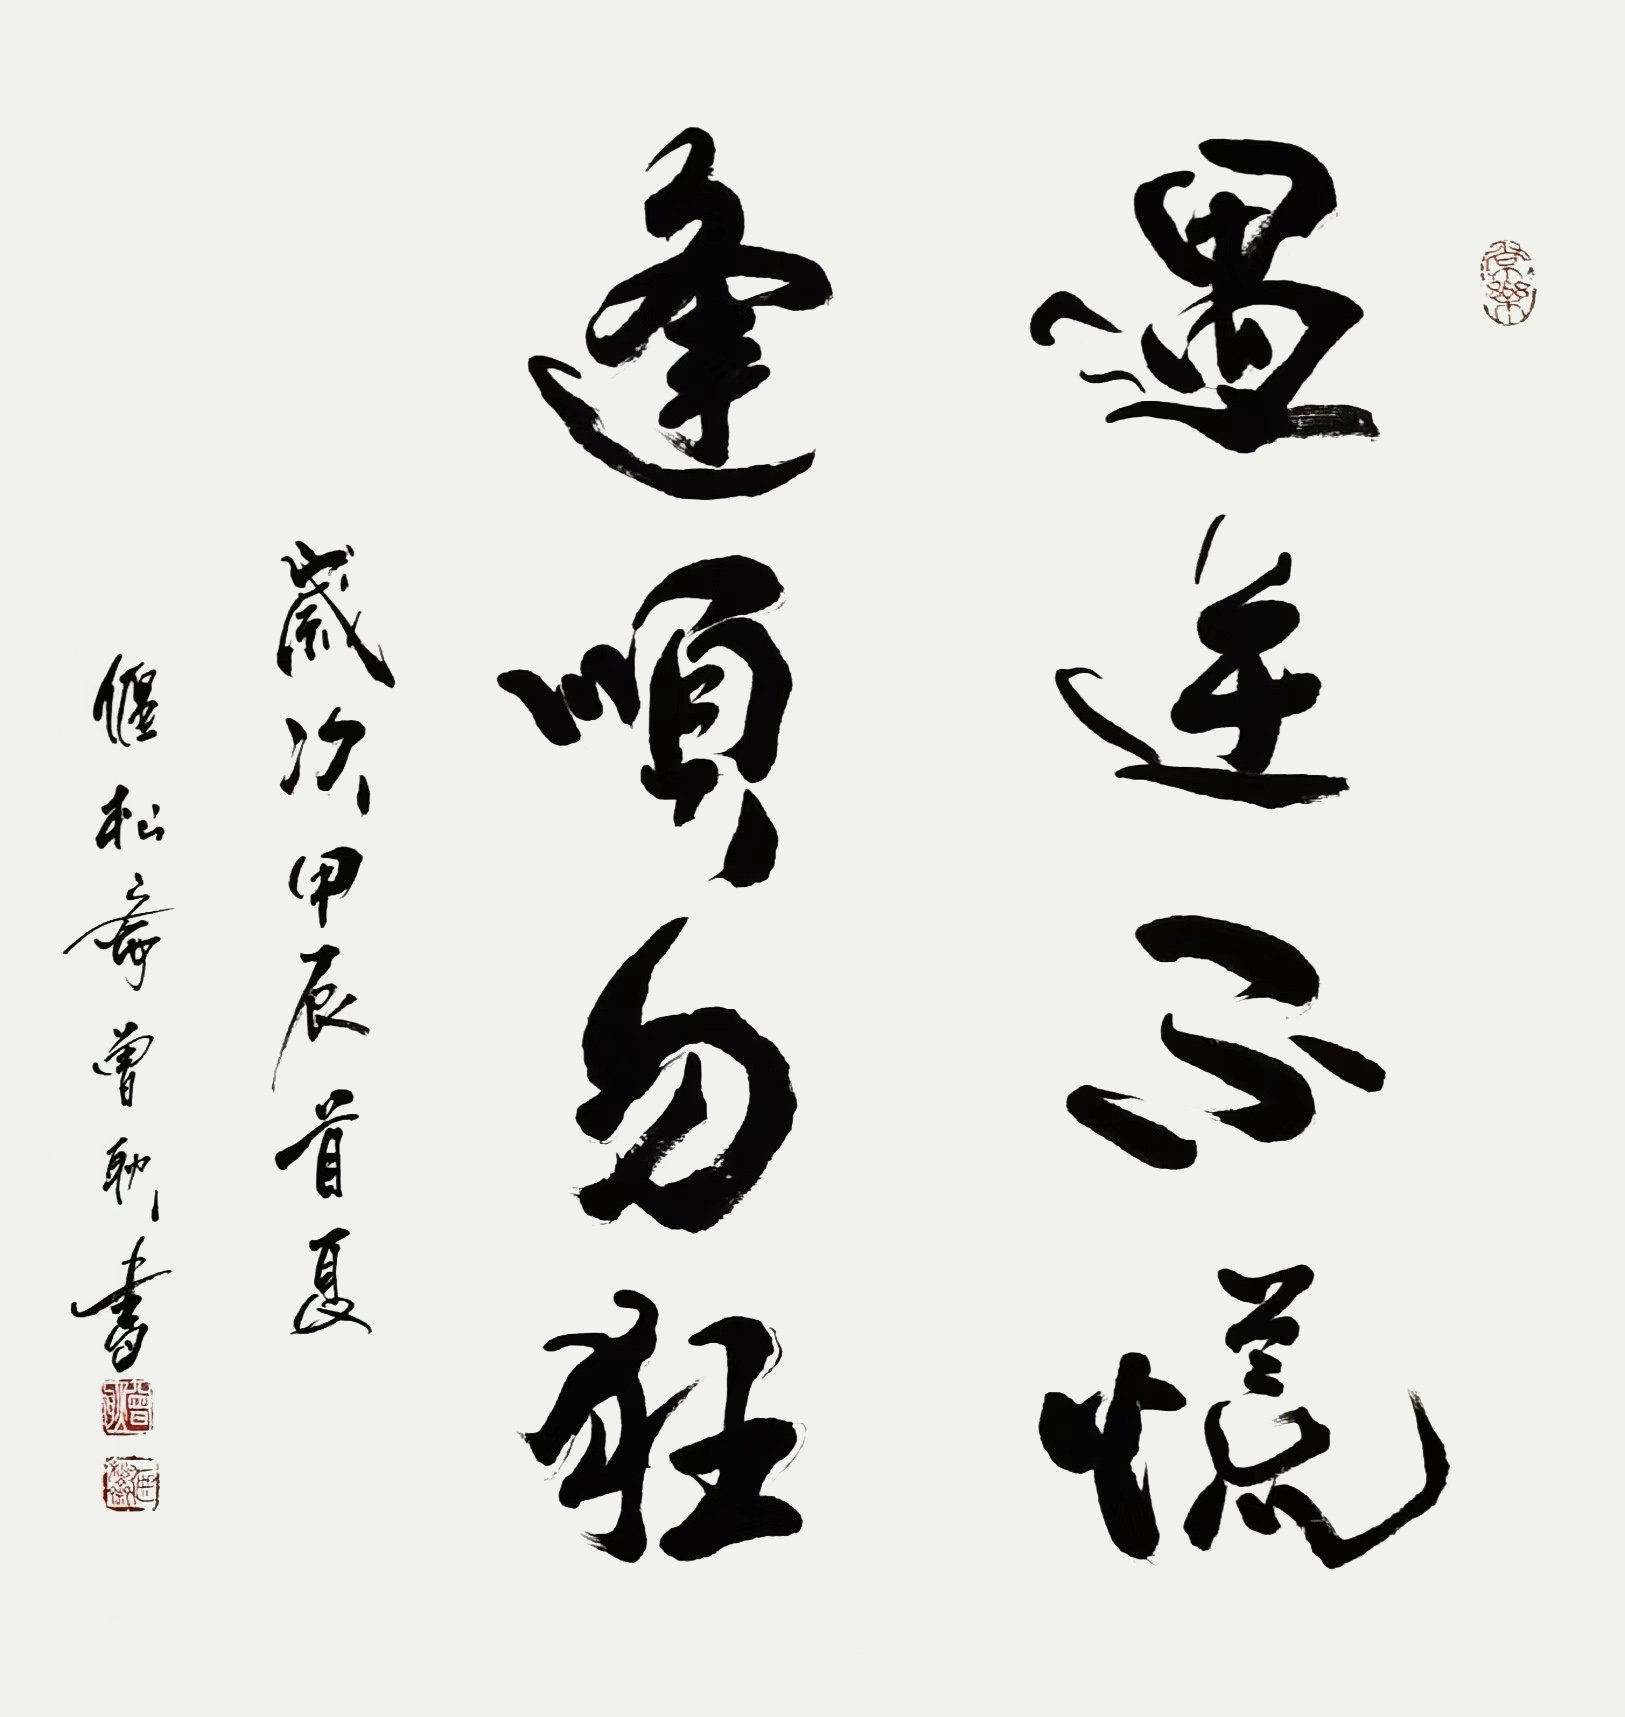 遇逆不慌
逢順勿狂
歲次甲辰首夏
偃松齋曾耿書
常樂